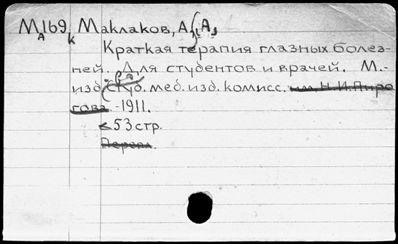 МА169к Маклаков, А. А.
Краткая терапия глазных болез-
ней. Для студентов и врачей. М.-
изд. студ. мед. изд. комисс. им. Н.И. Пиро
гова -1911.
53 стр.